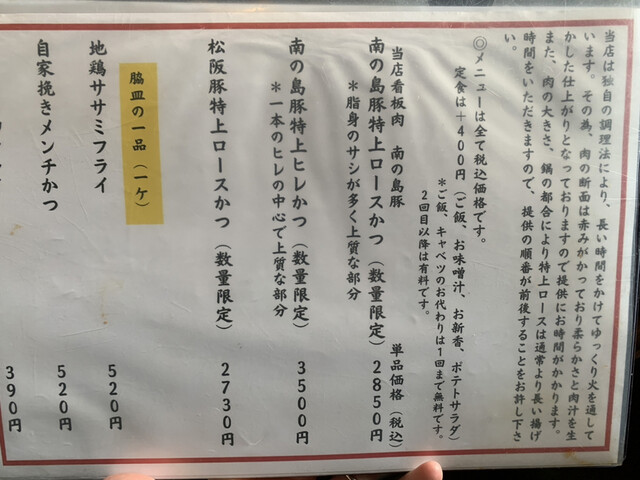 当店は独自の調理法により、長い時間をかけてゆっくり火を通して
います。その為、肉の断面は赤みがかっており柔らかさと肉汁を生
かした仕上がりとなっておりますので提供にお時間がかかります。
また、肉の大きさ、鍋の都合により特上ロースは通常より長い揚げ
時間をいただきますので、提供の順番が前後することをお許し下さ
い。
◎メニューは全て税込価格です。
定食は＋400円（ご飯、お味噌汁、お新香、ポテトサラダ）
＊ご飯、キャベツのお代わりは1回まで無料です。
2回目以降は有料です。
当店看板肉　南の島豚　単品価格（税込）
南の島豚特上ロースかつ（数量限定）　2850円
＊脂身のサシが多く上質な部分
南の島豚特上ヒレかつ（数量限定）　3500円
＊一本のヒレの中心で上質な部分
松阪豚特上ロースかつ（数量限定）　2730円
脇皿の一品（一ケ）
地鶏ササミフライ　520円
自家挽きメンチかつ　520円
390円